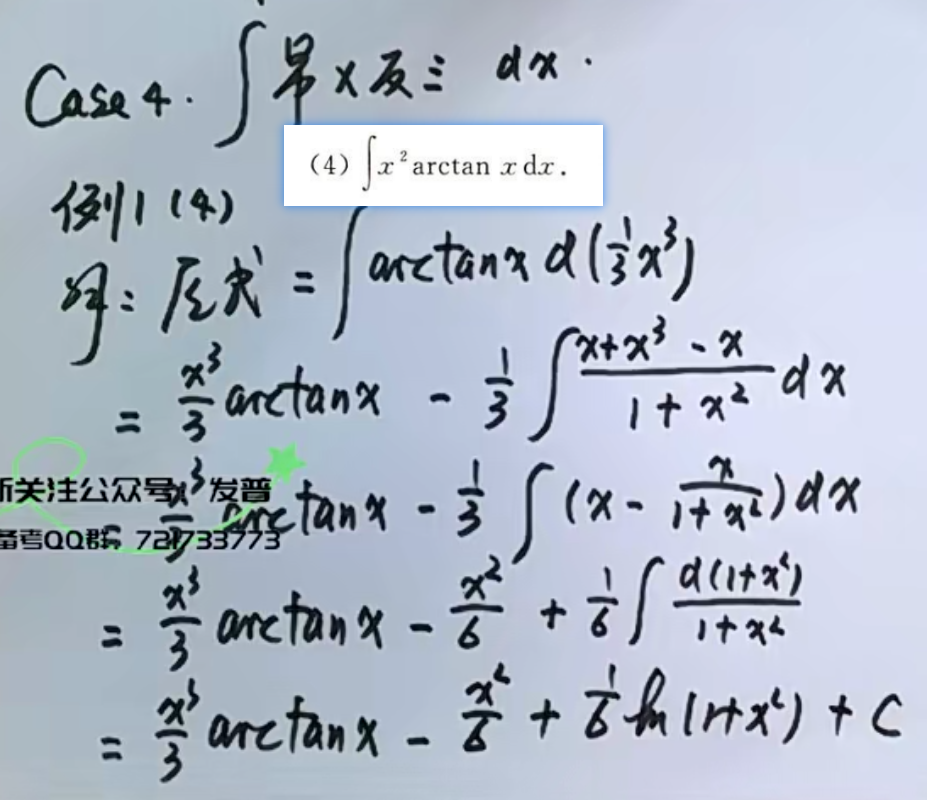 Case 4. ∫幂×反三 dx.
(4) ∫x² arctan x dx.
例1 (4)
解: 原式 = ∫arctanx d(⅓x³)
= x³/3 arctanx - 1/3 ∫ (x+x³-x)/(1+x²) dx
新关注公众号: 发普
= x³/3 arctanx - 1/3 ∫ (x - x/(1+x²)) dx
备考QQ群: 721733773
= x³/3 arctanx - x²/6 + 1/6 ∫ d(1+x²)/(1+x²)
= x³/3 arctanx - x²/6 + 1/6 ln(1+x²) + C